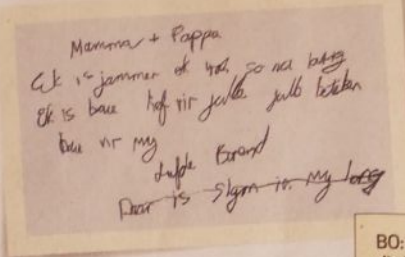 Mamma + Pappa
Ek is jammer ek was so
Ek is baie lief vir julle julle beteken
baie vir my
Liefde Barend
Daar is slym in my long
BO: